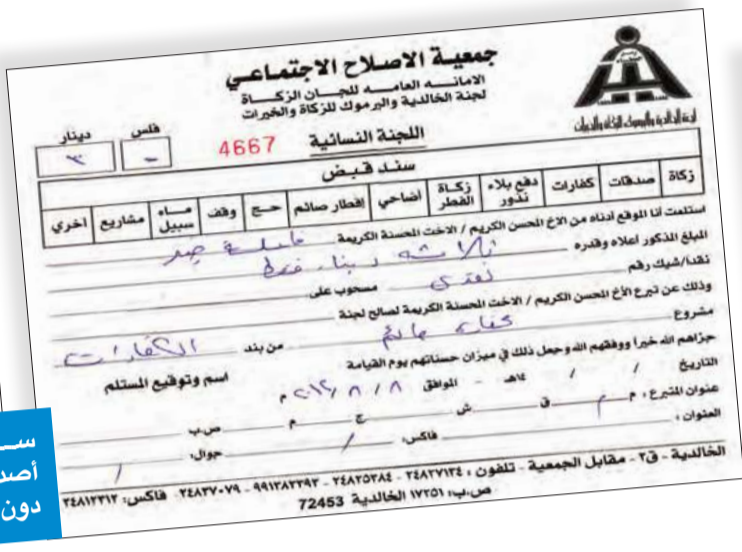 جمعية الاصلاح الاجتماعي
الامانه العامه للجان الزكاة
لجنة الخالدية واليرموك للزكاة والخيرات
لجنة الخالدية واليرموك للزكاة والخيرات
اللجنة النسائية
4667
فلس دينار
- ٣
سند قبض
زكاة صدقات كفارات دفع بلاء نذور زكاة الفطر اضاحي إفطار صائم حج وقف ماء سبيل مشاريع اخرى
استلمت أنا الموقع أدناه من الاخ المحسن الكريم / الاخت المحسنة الكريمة
المبلغ المذكور أعلاه وقدره ثلاثة دينار فقط
نقداً/شيك رقم نقدي مسحوب على
وذلك عن تبرع الأخ المحسن الكريم / الاخت المحسنة الكريمة لصالح لجنة
مشروع من بند الكفارات
جزاهم الله خيرا ووفقهم الله وجعل ذلك في ميزان حسناتهم يوم القيامة
اسم وتوقيع المستلم
التاريخ / / ١٤هـ - الموافق ٨ / ٨ / ٢٠١٢ م
عنوان المتبرع : م ق ش ج م ص.ب
العنوان : فاكس: / جوال: /
الخالدية - ق٢ - مقابل الجمعية - تلفون : ٢٤٨٢٧١٢٤ - ٢٤٨٢٥٢٨٤ - ٩٩١٢٨٢٢٩٢ - ٢٤٨٢٧٠٧٩ فاكس: ٢٤٨١٢٣١٢
ص.ب: ١٧٢٥١ الخالدية 72453
أصد
دون